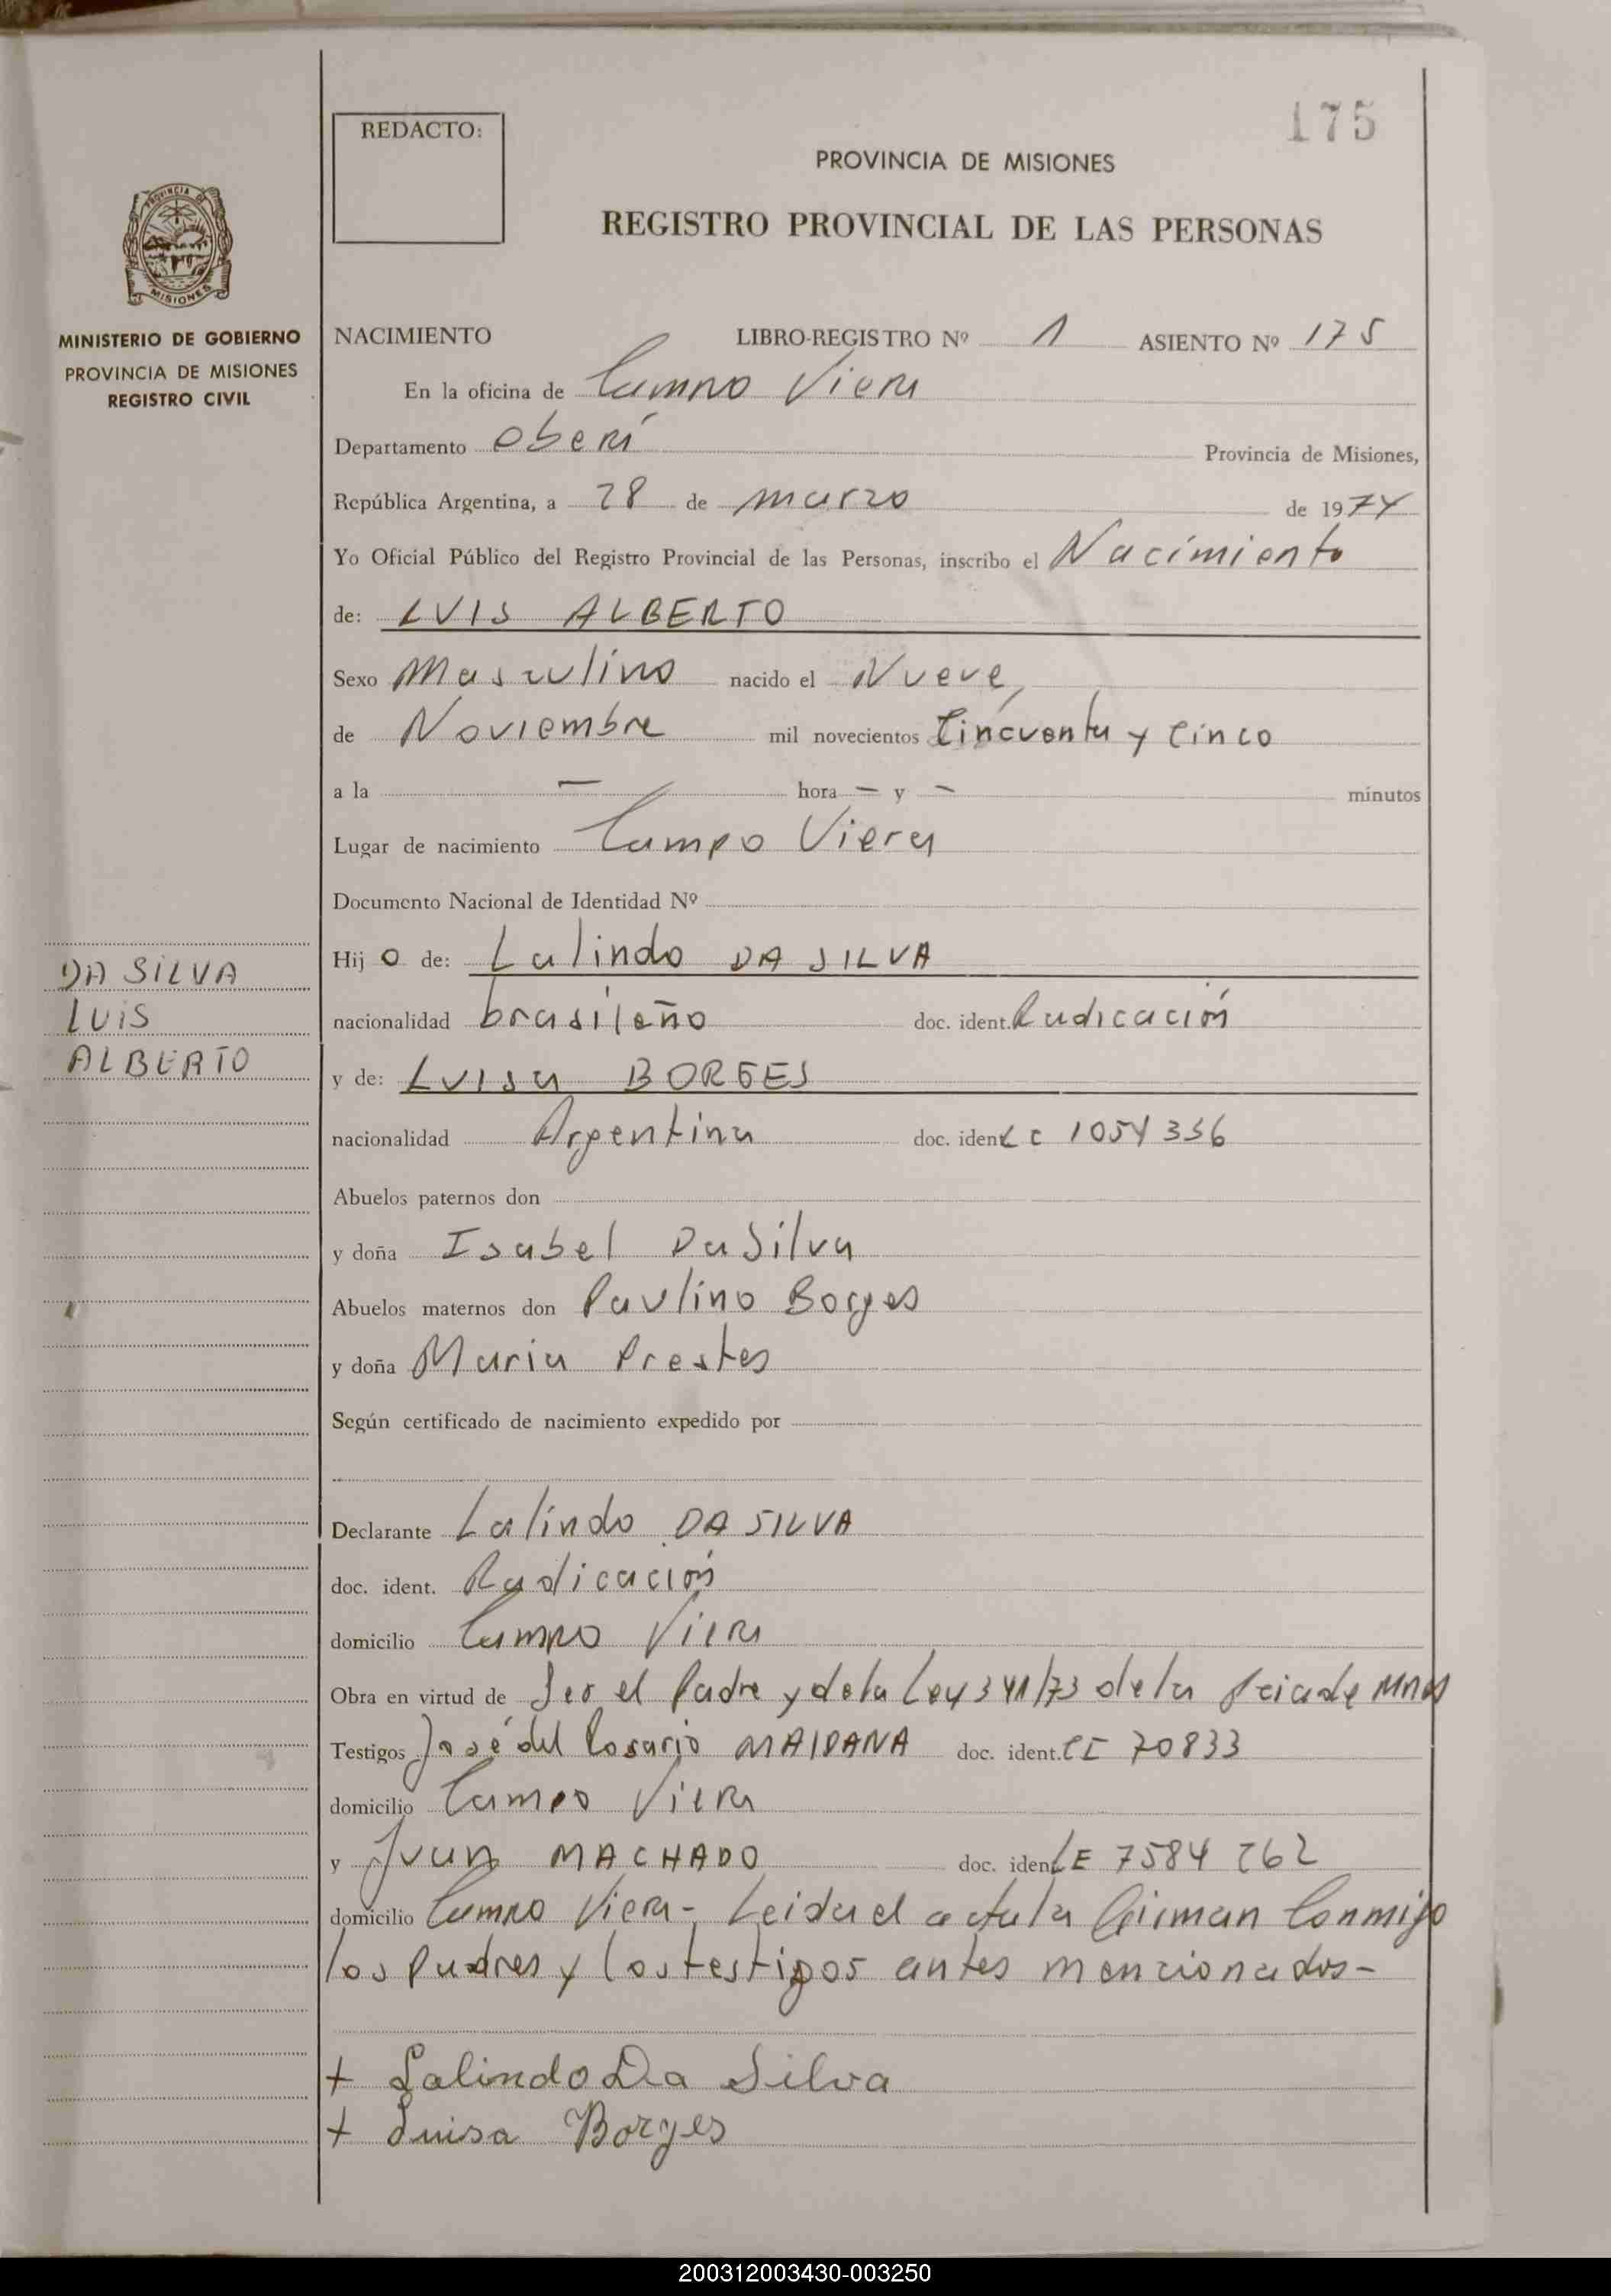 175
REDACTO:
PROVINCIA DE MISIONES
REGISTRO PROVINCIAL DE LAS PERSONAS
PROVINCIA DE
MISIONES
MINISTERIO DE GOBIERNO
PROVINCIA DE MISIONES
REGISTRO CIVIL
NACIMIENTO LIBRO-REGISTRO Nº 1 ASIENTO Nº 175
En la oficina de Campo Viera
Departamento Oberí Provincia de Misiones,
República Argentina, a 28 de marzo de 1974
Yo Oficial Público del Registro Provincial de las Personas, inscribo el Nacimiento
de: LUIS ALBERTO
Sexo Masculino nacido el Nueve,
de Noviembre mil novecientos Cincuenta y Cinco
a la — hora — y — minutos
Lugar de nacimiento Campo Viera
Documento Nacional de Identidad Nº
Hijo de: Lalindo DA SILVA
DA SILVA
LUIS
ALBERTO
nacionalidad brasileño doc. ident. Radicación
y de: LUISA BORGES
nacionalidad Argentina doc. ident LC 1054336
Abuelos paternos don
y doña Isabel Da Silva
Abuelos maternos don Paulino Borges
y doña Maria Prestes
Según certificado de nacimiento expedido por
Declarante Lalindo DA SILVA
doc. ident. Radicación
domicilio Campo Viera
Obra en virtud de Ser el Padre y de la Ley 341/73 de la Pciade Mnes
Testigos José del Rosario MAIDANA doc. ident. CI 70833
domicilio Campo Viera
y Juan MACHADO doc. ident LE 7584262
domicilio Campo Viera-, Leida el acta la Firman Conmigo
los Padres y los testigos antes mencionados-
+ Lalindo Da Silva
+ Luisa Borges
200312003430-003250